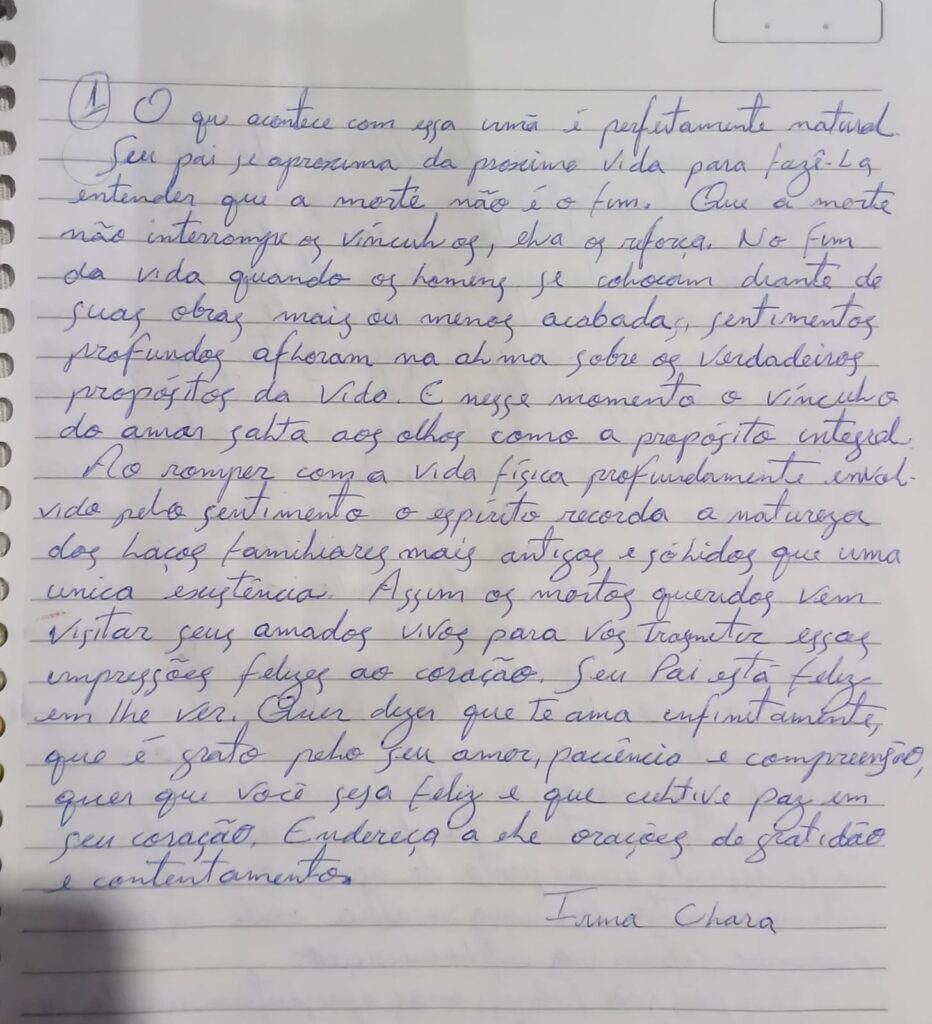 1 O que acontece com essa irmã é perfeitamente natural.
Seu pai se aproxima da próxima vida para fazê-la
entender que a morte não é o fim. Que a morte
não interrompe os vínculos, ela os reforça. No fim
da vida quando os homens se colocam diante de
suas obras mais ou menos acabadas, sentimentos
profundos afloram na alma sobre os verdadeiros
propósitos da vida. E nesse momento o vínculo
do amor salta aos olhos como a propósito integral.
Ao romper com a vida física profundamente envol-
vido pelo sentimento o espírito recorda a natureza
dos laços familiares mais antigos e sólidos que uma
unica existência. Assim os mortos queridos vem
visitar seus amados vivos para vos trasmetir essas
impressões felizes ao coração. Seu Pai está feliz
em lhe ver. Quer dizer que te ama infinitamente,
que é grato pelo seu amor, paciência e compreensão,
quer que você seja feliz e que cultive paz em
seu coração. Endereça a ele orações de gratidão
e contentamento.
Irma Clara